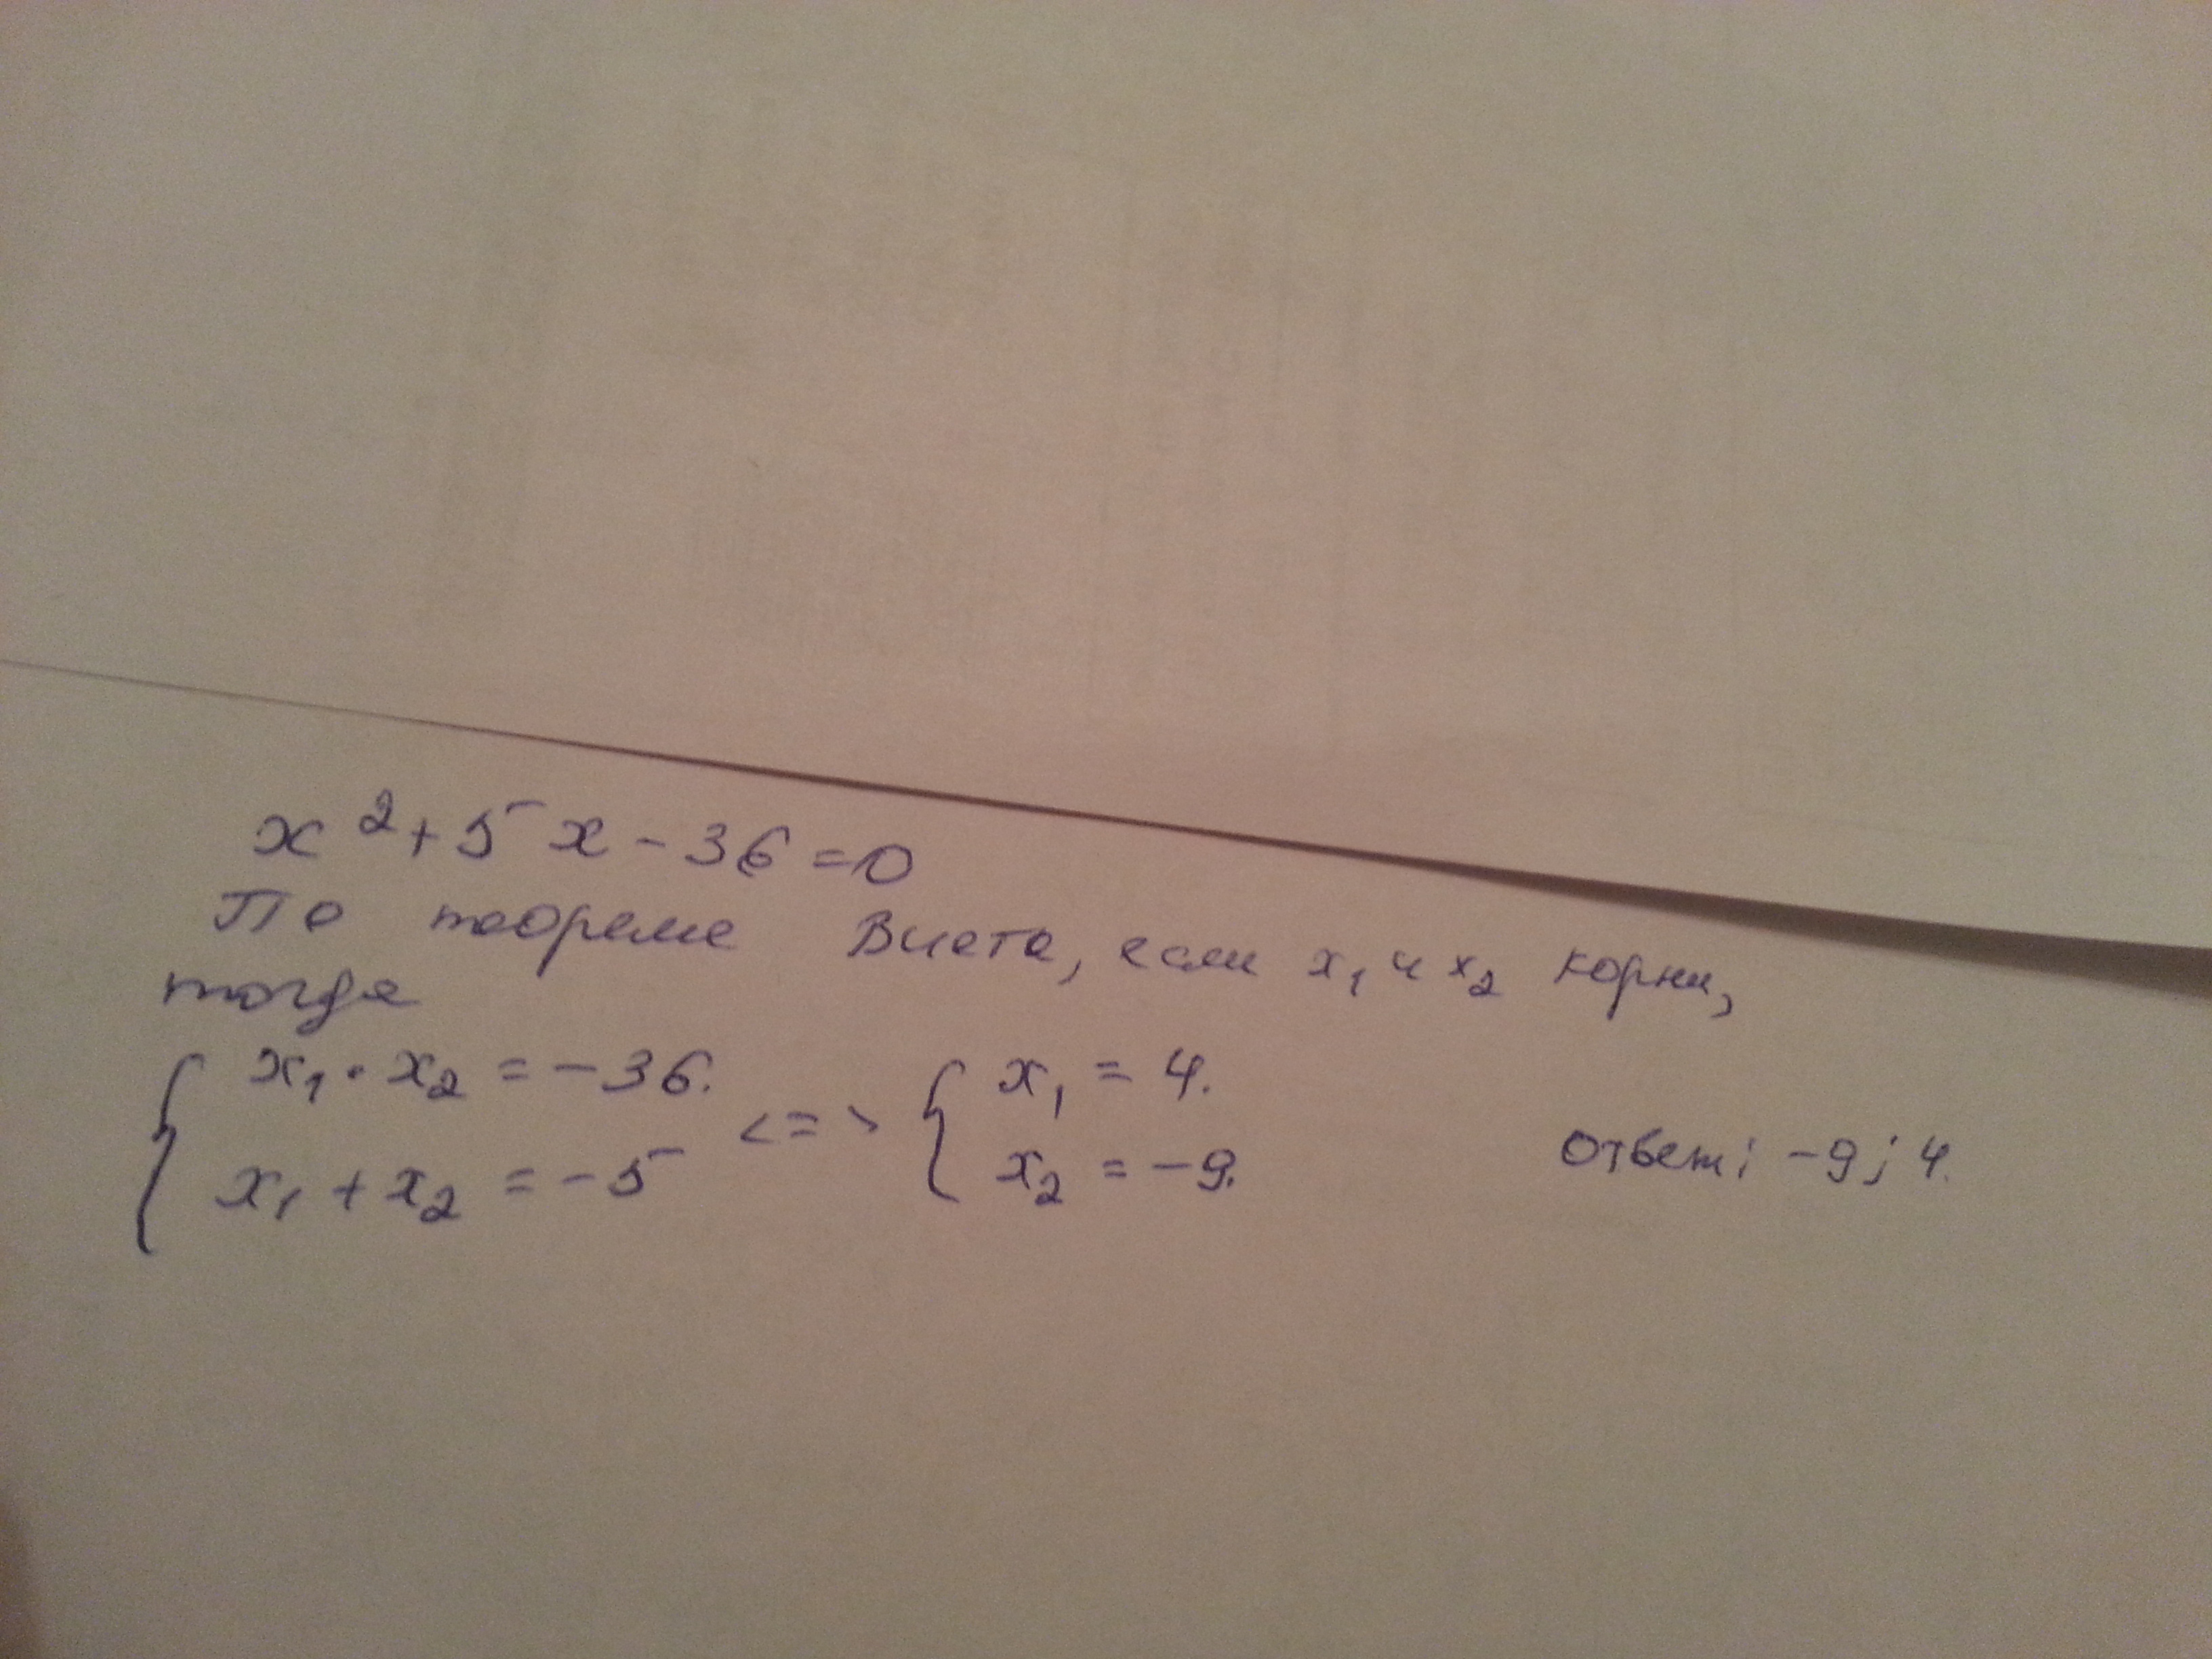 x² + 5x - 36 = 0
По теореме Виета, если x₁ и x₂ корни,
тогда
{ x₁ · x₂ = -36. <=> { x₁ = 4.
x₁ + x₂ = -5 x₂ = -9.
Ответ: -9; 4.